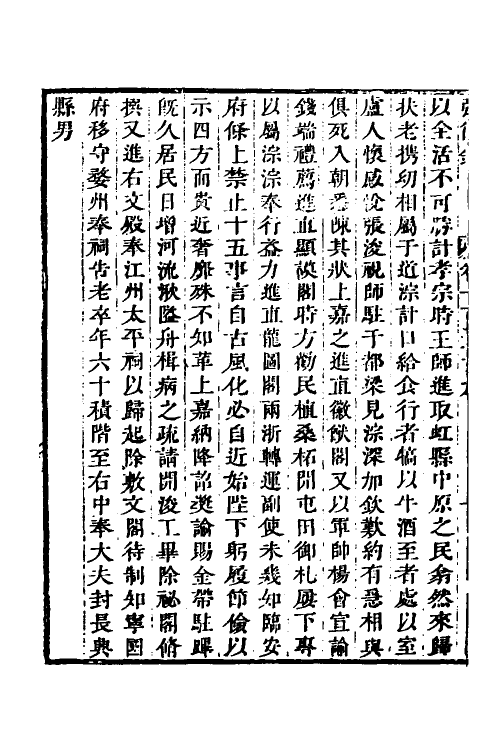 以全活不可勝計孝宗時王師進取虹縣中原之民翕然來歸
扶老携幼相屬于道淙計口給食行者犒以牛酒至者處以室
廬人懷感悅張浚視師駐于都梁見淙深加欽歎約有急相與
俱死入朝悉陳其狀上嘉之進直徽猷閣又以軍帥楊會宜諭
錢端禮薦進直顯謨閣時方勸民植桑柘開屯田御札屢下專
以屬淙淙奉行益力進直龍圖閣兩浙轉運副使未幾知臨安
府條上禁止十五事言自古風化必自近始陛下躬履節儉以
示四方而貴近奢靡殊不知革上嘉納降詔奬諭賜金帶駐蹕
旣久居民日增河流湫隘舟楫病之疏請開浚工畢除祕閣脩
撰又進右文殿奉江州太平祠以歸起除敷文閣待制知寧國
府移守婺州奉祠告老卒年六十積階至右中奉大夫封長興
縣男